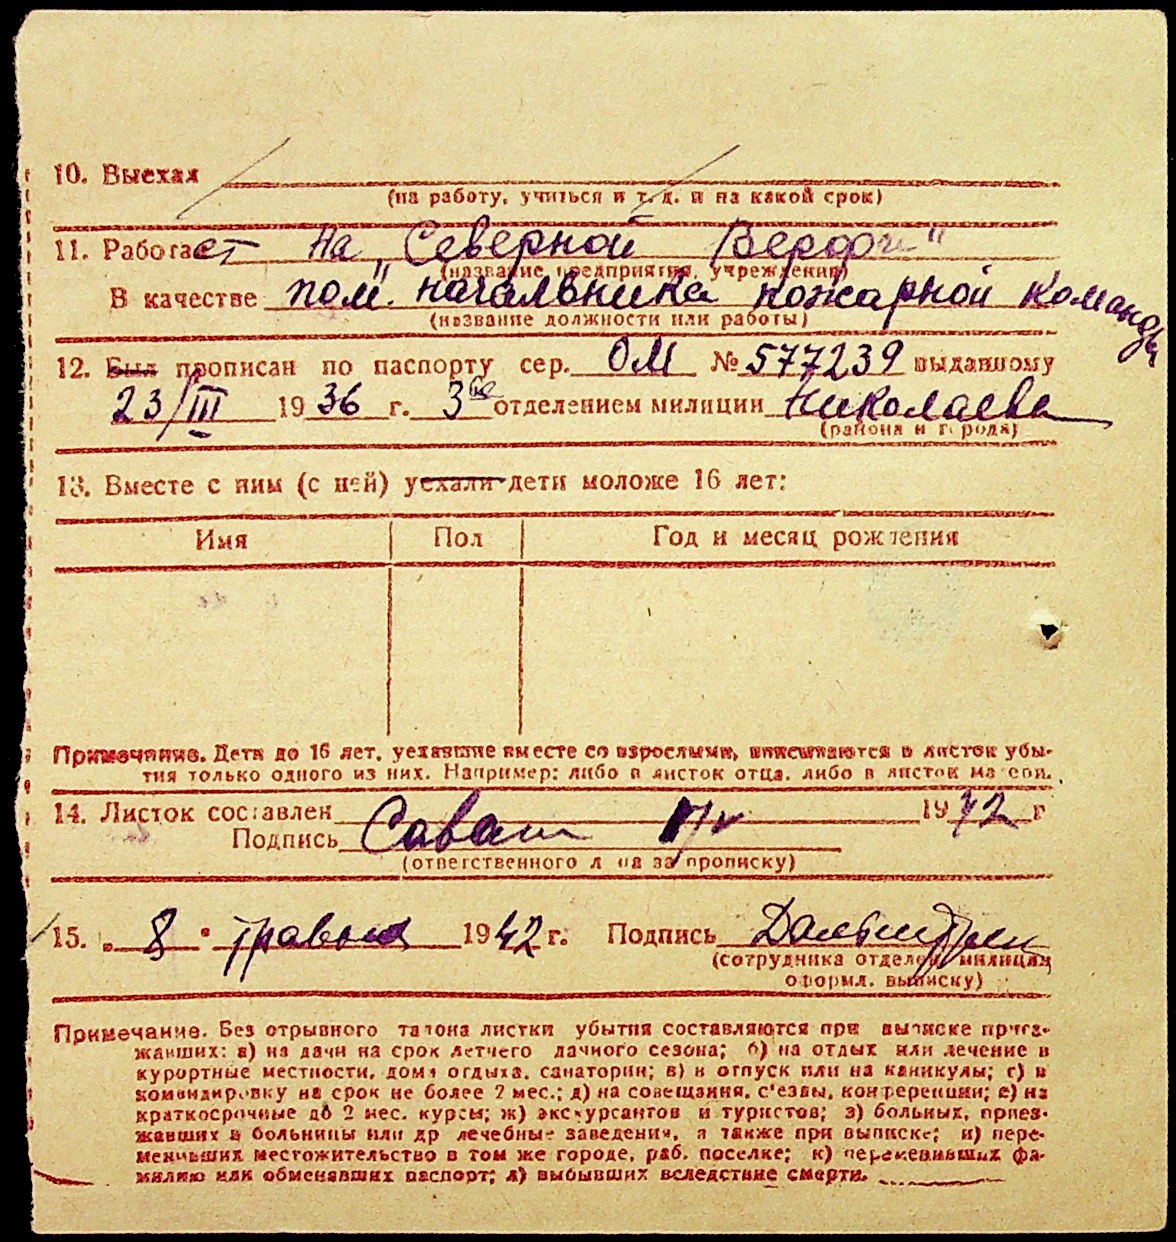 10. Выехал
(на работу, учиться и т. д. и на какой срок)
11. Работает на „Северной Верфи"
(название предприятия, учреждения)
В качестве пом. начальника пожарной команды
(название должности или работы)
12. Был прописан по паспорту сер. ОМ № 577239 выданному
23/III 1936 г. 3им отделением милиции Николаева
(района и города)
13. Вместе с ним (с ней) уехали дети моложе 16 лет:
Имя Пол Год и месяц рождения
Примечание. Дети до 16 лет, уехавшие вместе со взрослыми, вписываются в листок убы-
тия только одного из них. Например: либо в листок отца, либо в листок матери.
14. Листок составлен 1942 г
Подпись Саваш
(ответственного лица за прописку)
15. „ 8 " травня 1942 г. Подпись
(сотрудника отделен. милиции
оформл. выписку)
Примечание. Без отрывного талона листки убытия составляются при выписке приез-
жавших: а) на дачи на срок летнего дачного сезона; б) на отдых или лечение в
курортные местности, дома отдыха, санатории; в) в отпуск или на каникулы; г) в
командировку на срок не более 2 мес.; д) на совещания, с'езды, конференции; е) на
краткосрочные до 2 мес. курсы; ж) экскурсантов и туристов; з) больных, приез-
жавших в больницы или др лечебные заведения, а также при выписке; и) пере-
менивших местожительство в том же городе, раб. поселке; к) переменивших фа-
милию или обменявших паспорт; л) выбывших вследствие смерти.